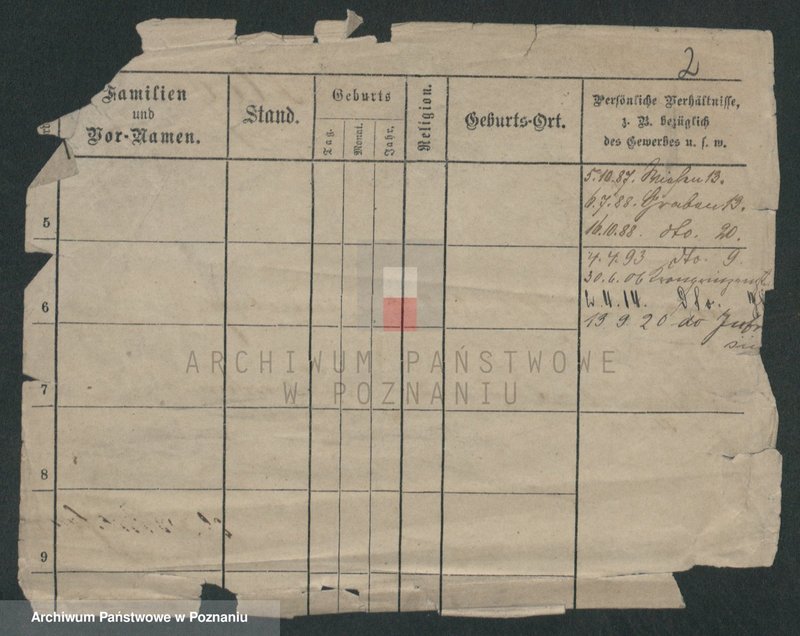 2
Familien
und
Vor-Namen.
Stand.
Geburts
Tag.
Monat.
Jahr.
Religion.
Geburts-Ort.
Persönliche Verhältnisse,
z. B. bezüglich
des Gewerbes u. s. w.
5.10.87. 13.
6.7.88. Graben 19.
5
16.10.88. dto. 20.
4.4.93 dto. 9
30.6.06
6
4.14.
13 9 20 do
ARCHIWUM PAŃSTWOWE
W POZNANIU
7
8
9
Archiwum Państwowe w Poznaniu